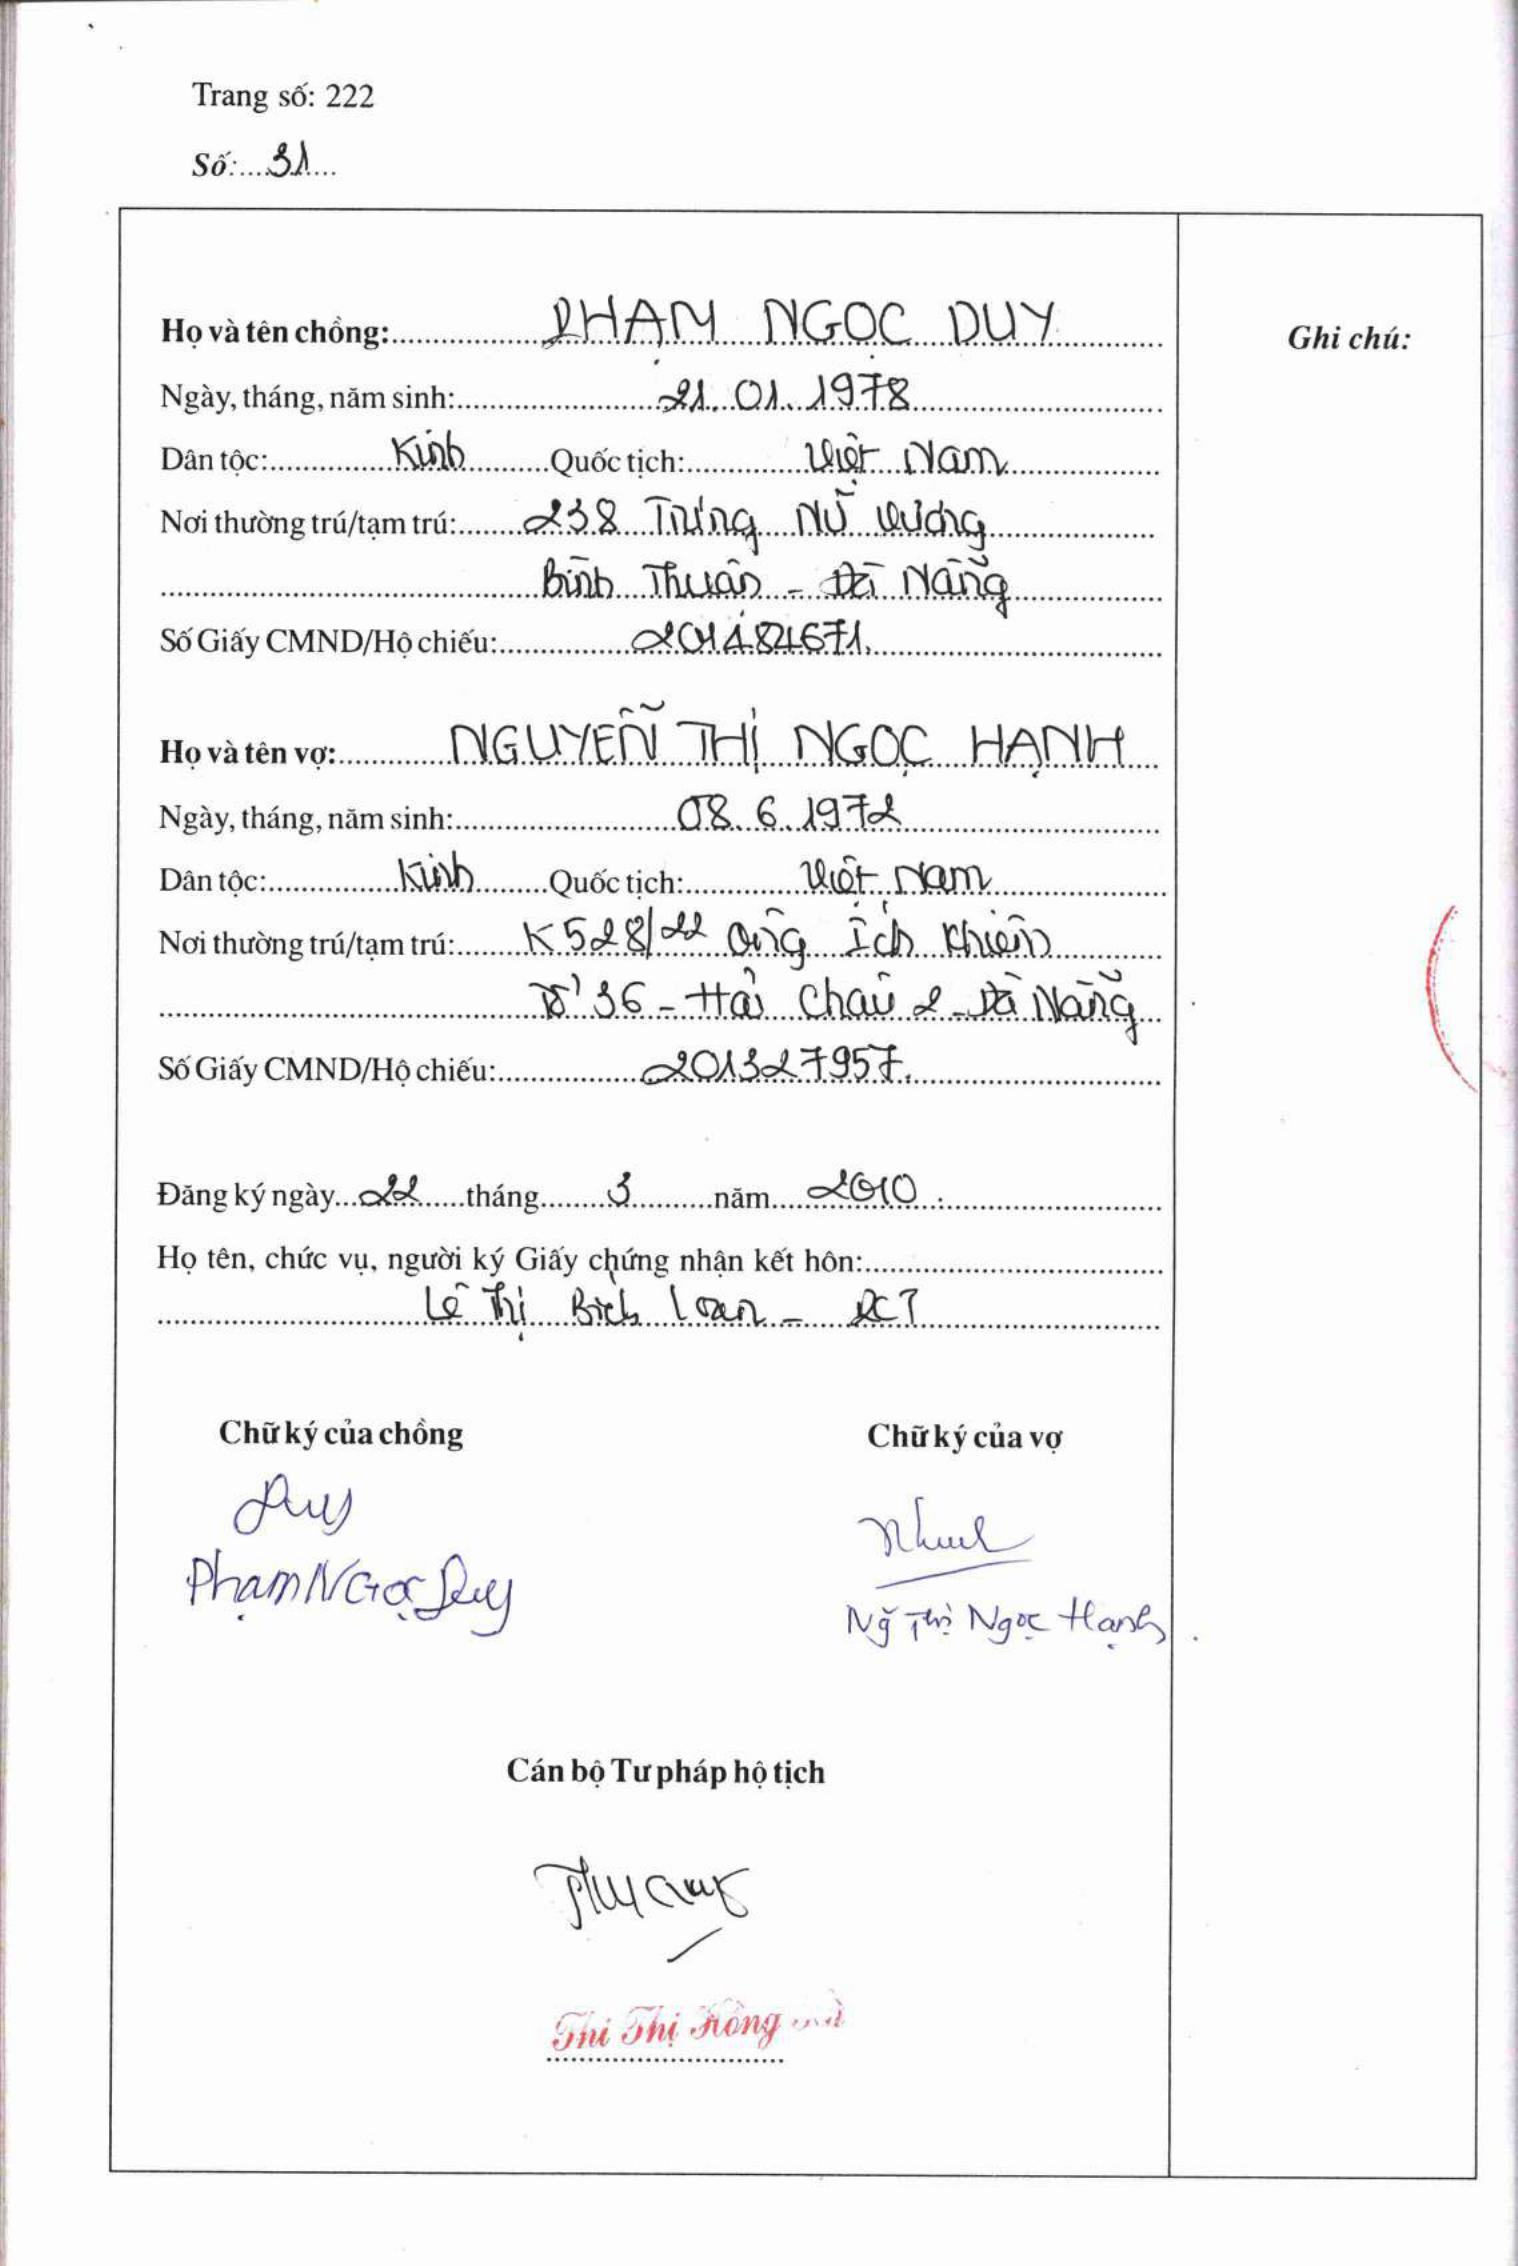 Trang số: 222
Số:....31....
Họ và tên chồng: PHẠM NGỌC DUY
Ghi chú:
Ngày, tháng, năm sinh: 21.01.1978
Dân tộc: Kinh Quốc tịch: Việt Nam
Nơi thường trú/tạm trú: 238 Trưng Nữ Vương
Bình Thuận - Đà Nẵng
Số Giấy CMND/Hộ chiếu: 201484671.
Họ và tên vợ: NGUYỄN THỊ NGỌC HẠNH
Ngày, tháng, năm sinh: 08.6.1972
Dân tộc: Kinh Quốc tịch: Việt Nam
Nơi thường trú/tạm trú: K528/22 Ông Ích Khiêm
Tổ 36 - Hải Châu 2 - Đà Nẵng
Số Giấy CMND/Hộ chiếu: 201327957.
Đăng ký ngày 22 tháng 3 năm 2010
Họ tên, chức vụ, người ký Giấy chứng nhận kết hôn:
Lê Thị Bích Loan - PCT
Chữ ký của chồng Chữ ký của vợ
Duy
Phạm Ngọc Duy
Ng̃ Thị Ngọc Hạnh
Cán bộ Tư pháp hộ tịch
Thi Thị Hồng